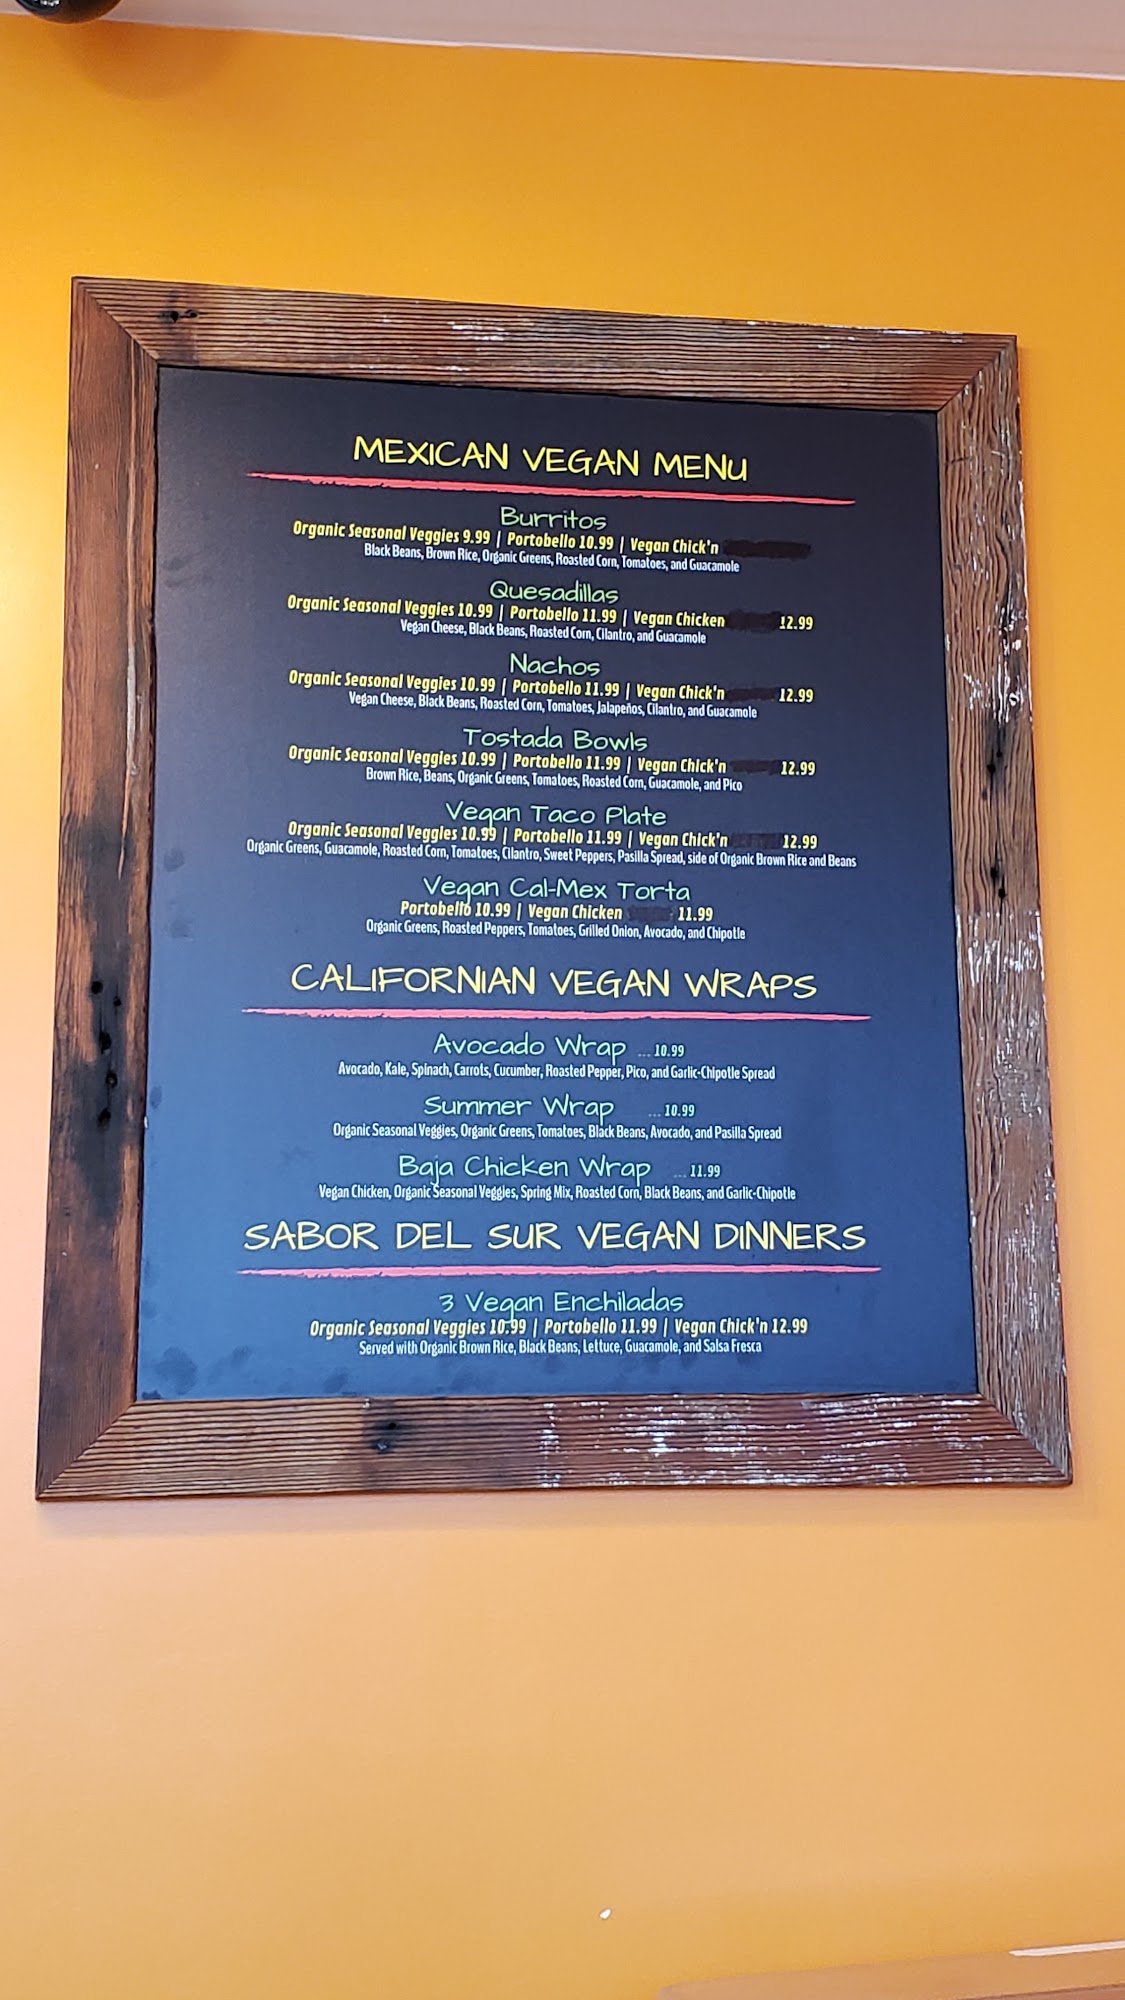 MEXICAN VEGAN MENU
Burritos
Organic Seasonal Veggies 9.99 | Portobello 10.99 | Vegan Chick'n
Black Beans, Brown Rice, Organic Greens, Roasted Corn, Tomatoes, and Guacamole
Quesadillas
Organic Seasonal Veggies 10.99 | Portobello 11.99 | Vegan Chicken 12.99
Vegan Cheese, Black Beans, Roasted Corn, Cilantro, and Guacamole
Nachos
Organic Seasonal Veggies 10.99 | Portobello 11.99 | Vegan Chick'n 12.99
Vegan Cheese, Black Beans, Roasted Corn, Tomatoes, Jalapeños, Cilantro, and Guacamole
Tostada Bowls
Organic Seasonal Veggies 10.99 | Portobello 11.99 | Vegan Chick'n 12.99
Brown Rice, Beans, Organic Greens, Tomatoes, Roasted Corn, Guacamole, and Pico
Vegan Taco Plate
Organic Seasonal Veggies 10.99 | Portobello 11.99 | Vegan Chick'n 12.99
Organic Greens, Guacamole, Roasted Corn, Tomatoes, Cilantro, Sweet Peppers, Pasilla Spread, side of Organic Brown Rice and Beans
Vegan Cal-Mex Torta
Portobello 10.99 | Vegan Chicken 11.99
Organic Greens, Roasted Peppers, Tomatoes, Grilled Onion, Avocado, and Chipotle
CALIFORNIAN VEGAN WRAPS
Avocado Wrap ... 10.99
Avocado, Kale, Spinach, Carrots, Cucumber, Roasted Pepper, Pico, and Garlic-Chipotle Spread
Summer Wrap ... 10.99
Organic Seasonal Veggies, Organic Greens, Tomatoes, Black Beans, Avocado, and Pasilla Spread
Baja Chicken Wrap ... 11.99
Vegan Chicken, Organic Seasonal Veggies, Spring Mix, Roasted Corn, Black Beans, and Garlic-Chipotle
SABOR DEL SUR VEGAN DINNERS
3 Vegan Enchiladas
Organic Seasonal Veggies 10.99 | Portobello 11.99 | Vegan Chick'n 12.99
Served with Organic Brown Rice, Black Beans, Lettuce, Guacamole, and Salsa Fresca